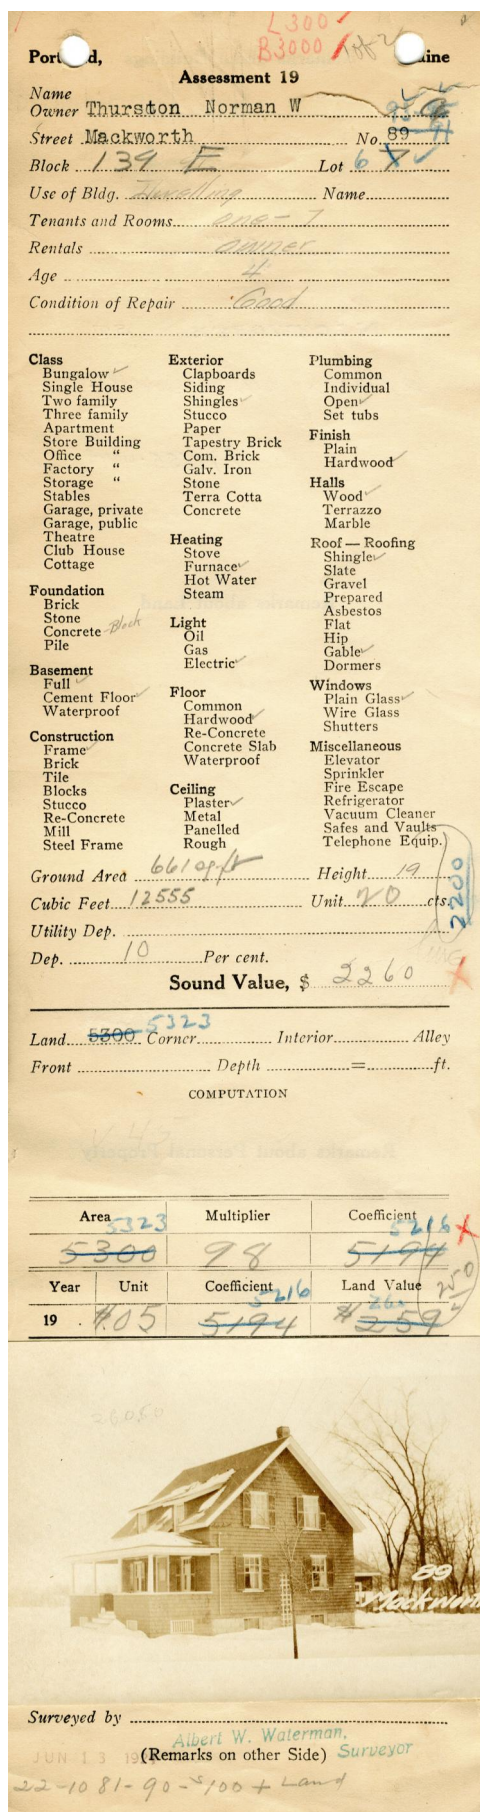 L300
B3000 1 of 2
Portland, Maine
Assessment 19
Name
Owner Thurston Norman W
Street Mackworth No. 89
Block 139 E Lot 6 7
Use of Bldg. Dwelling Name
Tenants and Rooms one - 7
Rentals owner
Age 4
Condition of Repair Good
Class
Bungalow ✓
Single House
Two family
Three family
Apartment
Store Building
Office "
Factory "
Storage "
Stables
Garage, private
Garage, public
Theatre
Club House
Cottage
Foundation
Brick
Stone
Concrete - Block
Pile
Basement
Full ✓
Cement Floor ✓
Waterproof
Construction
Frame ✓
Brick
Tile
Blocks
Stucco
Re-Concrete
Mill
Steel Frame
Exterior
Clapboards
Siding
Shingles ✓
Stucco
Paper
Tapestry Brick
Com. Brick
Galv. Iron
Stone
Terra Cotta
Concrete
Heating
Stove
Furnace ✓
Hot Water
Steam
Light
Oil
Gas
Electric ✓
Floor
Common
Hardwood ✓
Re-Concrete
Concrete Slab
Waterproof
Ceiling
Plaster ✓
Metal
Panelled
Rough
Plumbing
Common
Individual
Open ✓
Set tubs
Finish
Plain
Hardwood ✓
Halls
Wood ✓
Terrazzo
Marble
Roof — Roofing
Shingle ✓
Slate
Gravel
Prepared
Asbestos
Flat
Hip
Gable ✓
Dormers
Windows
Plain Glass ✓
Wire Glass
Shutters
Miscellaneous
Elevator
Sprinkler
Fire Escape
Refrigerator
Vacuum Cleaner
Safes and Vaults
Telephone Equip.
2200
Ground Area 661 sq ft Height 19
Cubic Feet 12555 Unit 20 cts.
Utility Dep.
Dep. 10 Per cent.
Sound Value, $ 2260
Land 5300 5323 Corner Interior Alley
Front Depth = ft.
COMPUTATION
Area Multiplier Coefficient
5323 5216
5300 98 5194
Year Unit Coefficient Land Value
5216 260
19 $.05 5194 $259
250
26050
89
Mackworth
Surveyed by
Albert W. Waterman,
Surveyor
JUN 13 19
(Remarks on other Side)
22-1081-90-$100 + Land